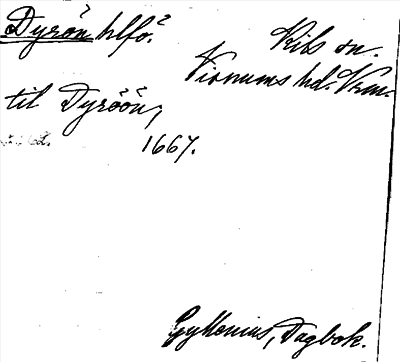 Dyrön hlfö.
Kils sn.
Visnums hd. Vrm.
til Dyröön,
1667.
Gyllenius, Dagbok.